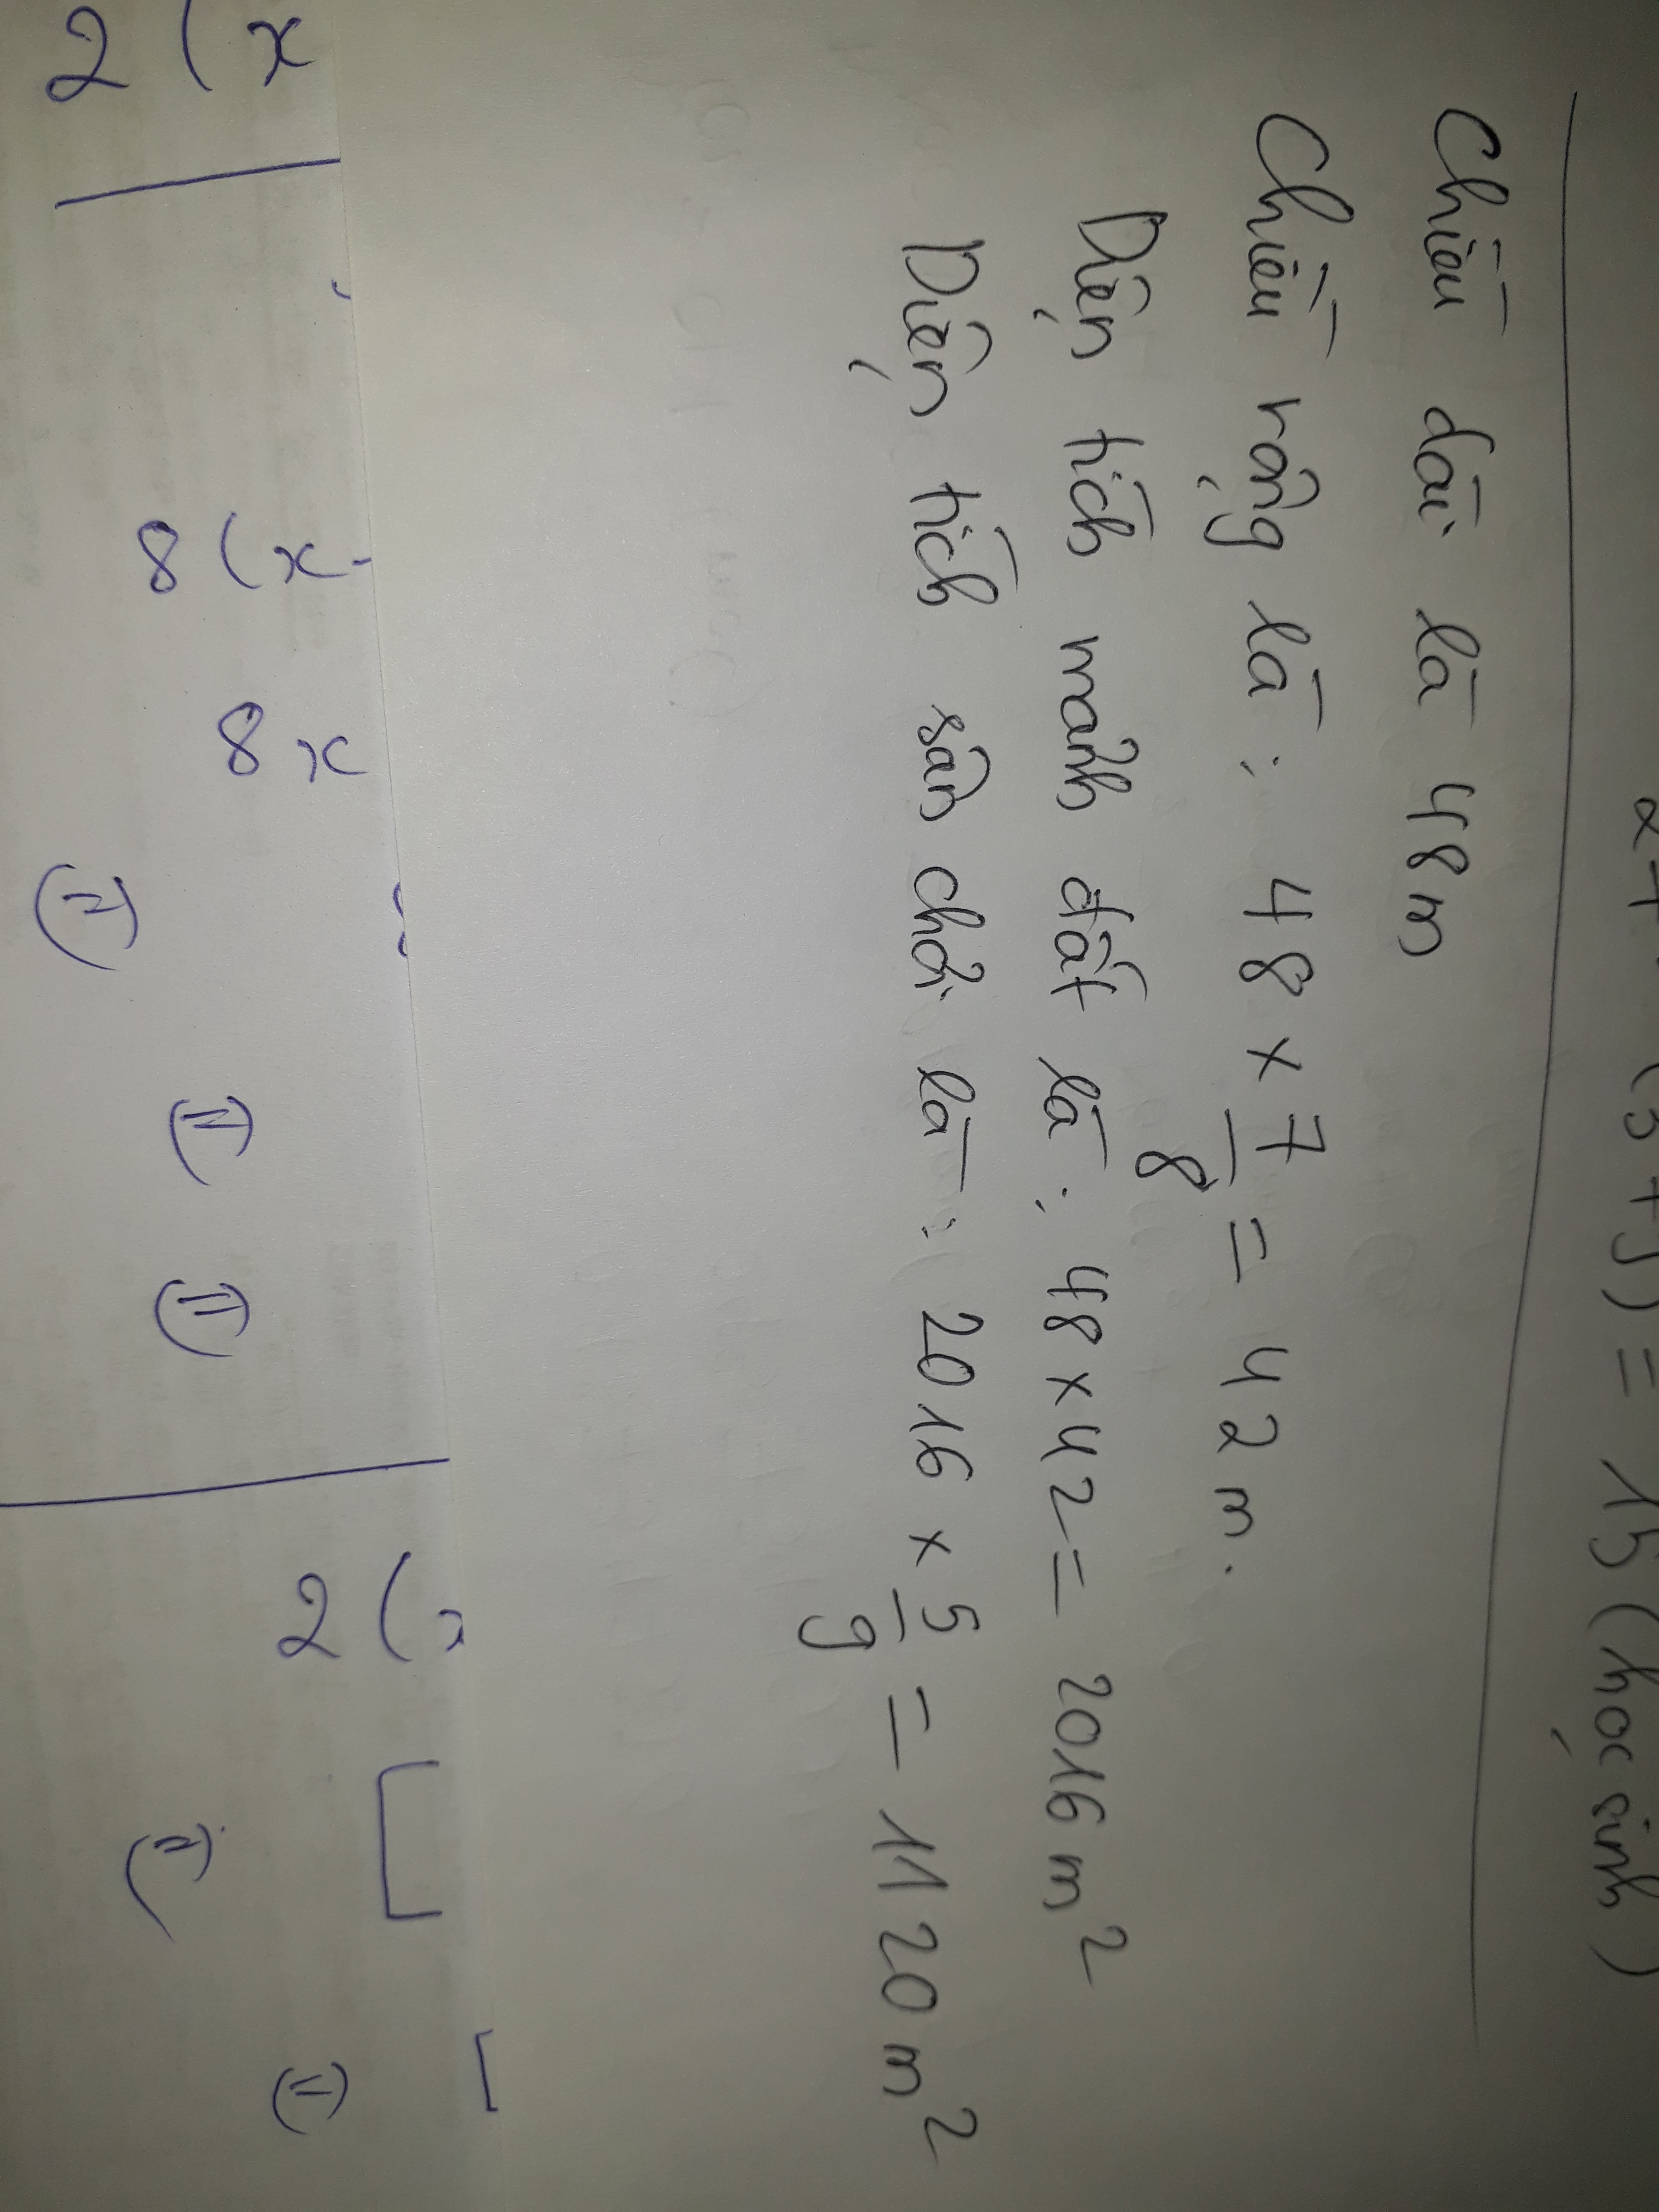 (3+5) = 15 (học sinh)
Chiều dài là 48m
Chiều rộng là : 48 x 7/8 = 42 m.
Diện tích mảnh đất là : 48 x 42 = 2016 m²
Diện tích sân chơi là : 2016 x 5/9 = 1120 m²
2 (x
8 (x-
8x
(=)
(=)
(=)
2 (x
[
(=)
[
(=)